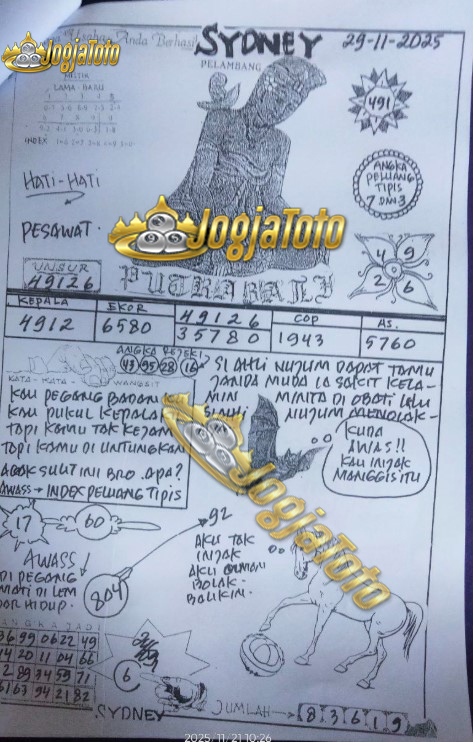 Anda Berhasil
SYDNEY
29-11-2025
JogjaToto
PELAMBANG
MISTIK
LAMA - BARU
INDEX
491
HATI-HATI
PESAWAT.
ANGKA
PELUANG
TIPIS
7 DAN 3
JogjaToto
UNSUR
49126
PUTRA BALI
4 9
2 6
KEPALA
4912
EKOR
6580
49126
35780
COP
1943
AS.
5760
ANGKA REJEKI
43 95 28 16
KATA - KATA - WANGSIT
KAU PEGANG BADAN
KAU PUKUL KEPALA
TAPI KAMU TAK KEJAM
TAPI KAMU DI UNTUNGKAN
AGAK SULIT INI BRO. APA?
AWASS → INDEX PELUANG TIPIS
SI AHLI NUJUM DAPAT TAMU
JANDA MUDA IA SAKIT KELA-
MIN MINTA DI OBATI LALU
NUJUM MENOLAK-
KUDA
AWAS!!
KAU INJAK
MANGGIS ITU
JogjaToto
17
60
92
AKU TAK
INJAK
AKU CUMAN
BOLAK-
BALIKIN.
AWASS!
DI PEGANG
MATI DI LEM
HIDUP.
804
ANGKA JADI
36 99 06 22 49
14 20 11 04 66
2 89 34 59 71
51 63 94 21 82
6
SYDNEY
JUMLAH → 83619
2025/11/21 10:26